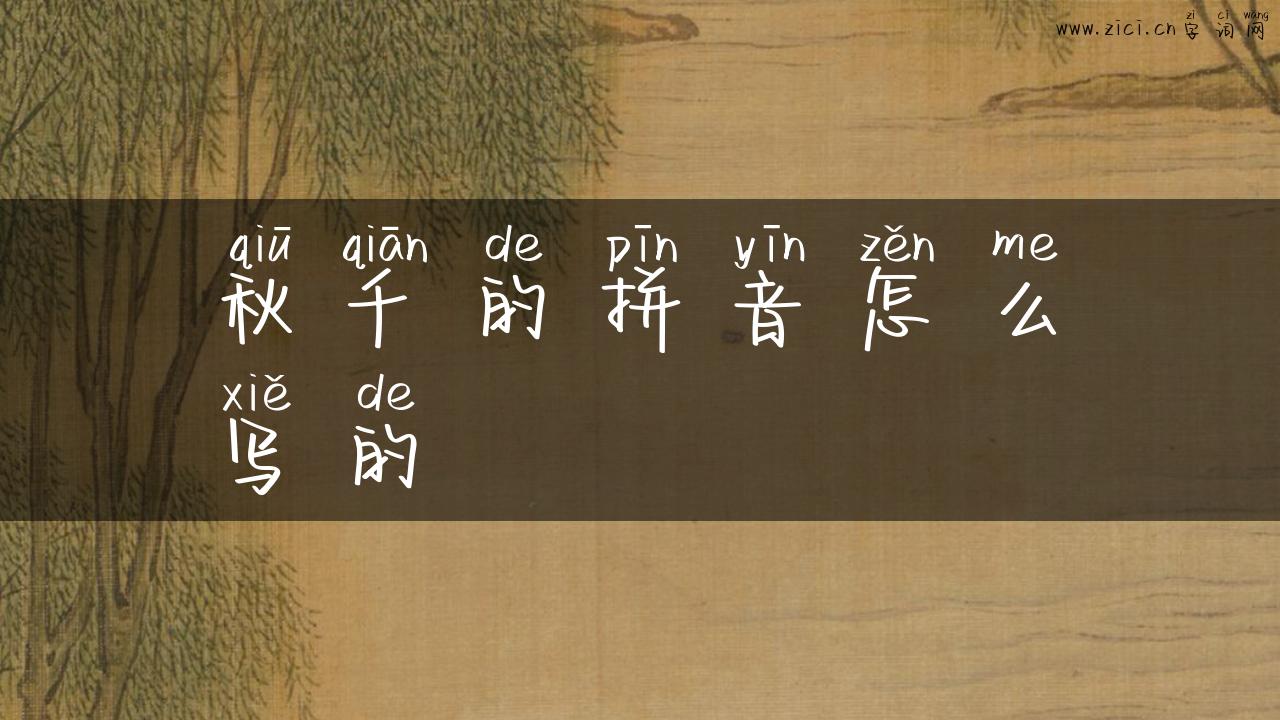 zì cí wǎng
www.zici.cn字词网
qiū qiān de pīn yīn zěn me
秋千的拼音怎么
xiě de
写的